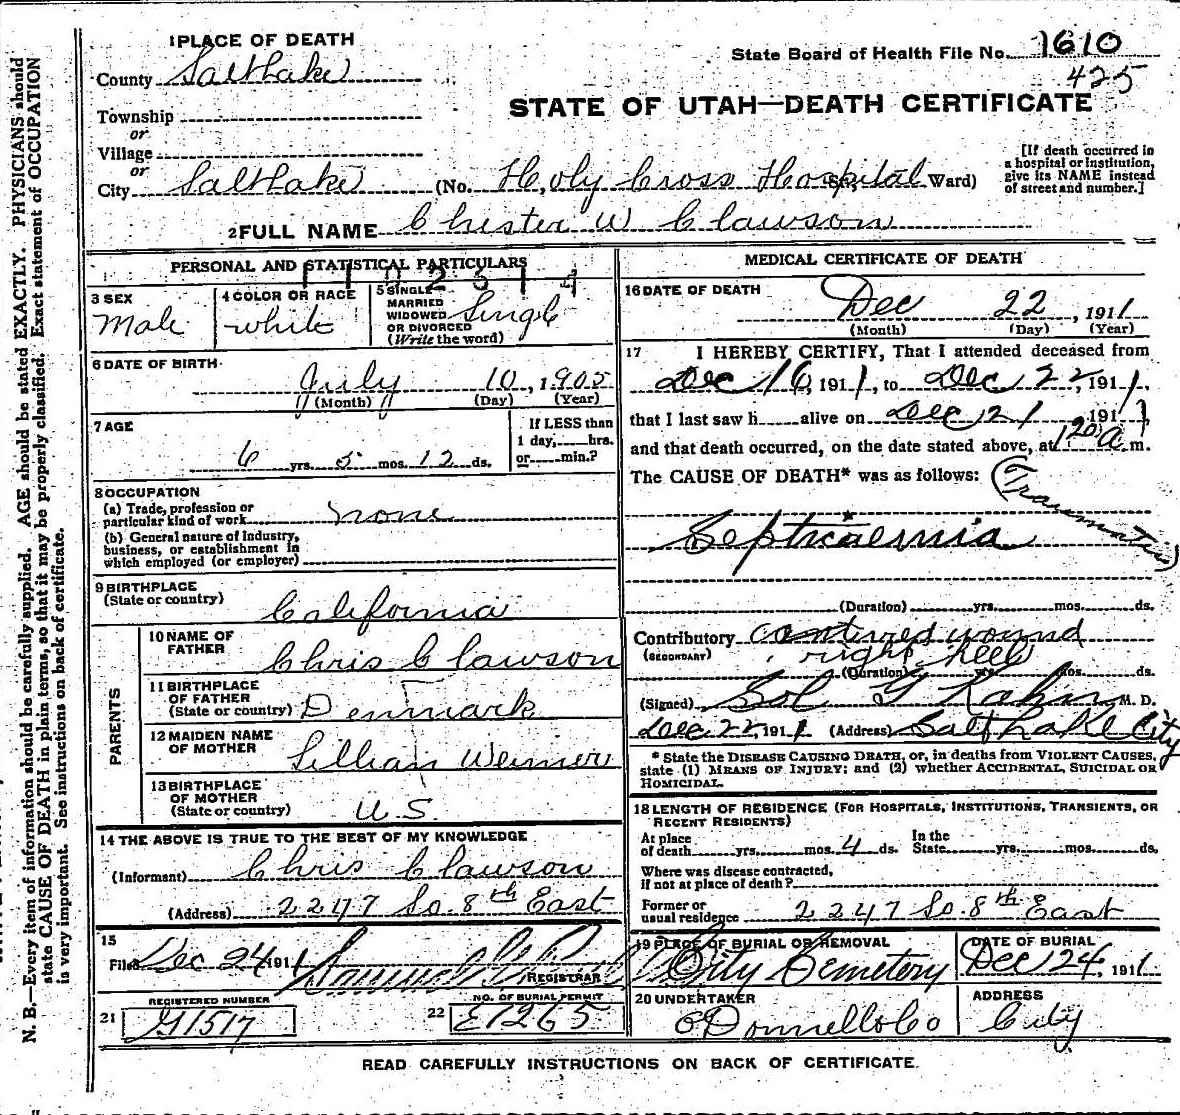 1 PLACE OF DEATH
County Salt Lake
Township
or
Village
or
City Salt Lake (No. Holy Cross Hospital Ward)
State Board of Health File No. 1610
425
STATE OF UTAH—DEATH CERTIFICATE
[If death occurred in
a hospital or institution,
give its NAME instead
of street and number.]
2 FULL NAME Chester W Clawson
PERSONAL AND STATISTICAL PARTICULARS
3 SEX
Male
4 COLOR OR RACE
white
5 SINGLE
MARRIED
WIDOWED
OR DIVORCED
(Write the word)
Single
6 DATE OF BIRTH
July 10, 1905
(Month) (Day) (Year)
7 AGE
6 yrs. 5 mos. 12 ds.
If LESS than
1 day, hrs.
or min.?
8 OCCUPATION
(a) Trade, profession or
particular kind of work none
(b) General nature of Industry,
business, or establishment in
which employed (or employer)
9 BIRTHPLACE
(State or country)
California
PARENTS
10 NAME OF
FATHER
Chris Clawson
11 BIRTHPLACE
OF FATHER
(State or country) Denmark
12 MAIDEN NAME
OF MOTHER
Lillian Weimer
13 BIRTHPLACE
OF MOTHER
(State or country) U.S.
14 THE ABOVE IS TRUE TO THE BEST OF MY KNOWLEDGE
(Informant) Chris Clawson
(Address) 2247 So. 8th East
15
Filed Dec 24 1911
REGISTRAR
REGISTERED NUMBER
21 G1517
NO. OF BURIAL PERMIT
22 E1265
MEDICAL CERTIFICATE OF DEATH
16 DATE OF DEATH
Dec 22, 1911
(Month) (Day) (Year)
17 I HEREBY CERTIFY, That I attended deceased from
Dec 16, 1911, to Dec 22 1911,
that I last saw h alive on Dec 21 1911,
and that death occurred, on the date stated above, at 120 a m.
The CAUSE OF DEATH* was as follows: (Traumatic)
Septicaemia
(Duration) yrs. mos. ds.
Contributory wound
(SECONDARY) right heel
(Duration) yrs. mos. ds.
(Signed) Sol G Kahn M. D.
Dec 22 1911 (Address) Salt Lake City
* State the DISEASE CAUSING DEATH, or, in deaths from VIOLENT CAUSES,
state (1) MEANS OF INJURY; and (2) whether ACCIDENTAL, SUICIDAL OR
HOMICIDAL.
18 LENGTH OF RESIDENCE (FOR HOSPITALS, INSTITUTIONS, TRANSIENTS, OR
RECENT RESIDENTS)
At place
of death yrs. mos. 4 ds. In the
State yrs. mos. ds.
Where was disease contracted,
if not at place of death?
Former or
usual residence 2247 So. 8th East
19 PLACE OF BURIAL OR REMOVAL
City Cemetery
DATE OF BURIAL
Dec 24, 1911
20 UNDERTAKER
O'Donnell & Co
ADDRESS
City
READ CAREFULLY INSTRUCTIONS ON BACK OF CERTIFICATE.
N. B.—Every item of information should be carefully supplied. AGE should be stated EXACTLY. PHYSICIANS should
state CAUSE OF DEATH in plain terms, so that it may be properly classified. Exact statement of OCCUPATION
is very important. See instructions on back of certificate.